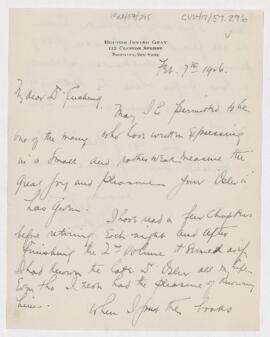 CUS417/57.296
HORTON IRVING GRAY
132 CLINTON STREET
BROOKLYN, NEW YORK
Feb. 7th 1926.
My dear Dr Cushing,
May I be permitted to be
one of the many who have written expressing
in a small and rather weak measure the
great Joy and Pleasure your Osler
has given.
I have read a few Chapters
before retiring each night and after
finishing the 2nd Volume it seemed as if
I had known the late Dr Osler all my life.
Even tho I never had the pleasure of knowing
him.
When I put the books